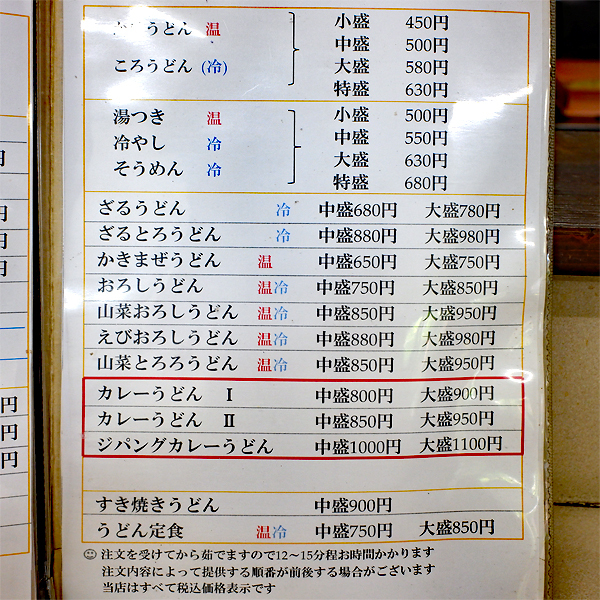 うどん 温
ころうどん (冷)
小盛 450円
中盛 500円
大盛 580円
特盛 630円
湯つき 温
冷やし 冷
そうめん 冷
小盛 500円
中盛 550円
大盛 630円
特盛 680円
ざるうどん 冷 中盛680円 大盛780円
ざるとろうどん 冷 中盛880円 大盛980円
かきまぜうどん 温 中盛650円 大盛750円
おろしうどん 温冷 中盛750円 大盛850円
山菜おろしうどん 温冷 中盛850円 大盛950円
えびおろしうどん 温冷 中盛880円 大盛980円
山菜とろろうどん 温冷 中盛850円 大盛950円
カレーうどん Ⅰ 中盛800円 大盛900円
カレーうどん Ⅱ 中盛850円 大盛950円
ジパングカレーうどん 中盛1000円 大盛1100円
すき焼きうどん 中盛900円
うどん定食 温冷 中盛750円 大盛850円
注文を受けてから茹でますので12～15分程お時間かかります
注文内容によって提供する順番が前後する場合がございます
当店はすべて税込価格表示です